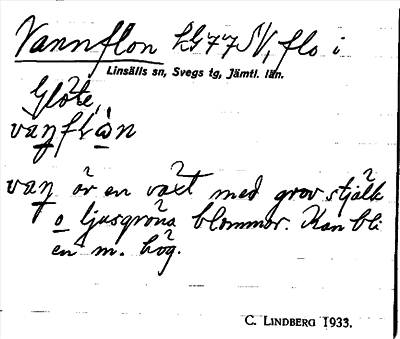 Vannflon LG77SV, flo i
Linsälls sn, Svegs tg, Jämtl. län.
Glöte,
vaņflὰn
vaņ är en växt med grov stjälk
o ljusgröna blommor. Kan bli
en m. hög.
C. LINDBERG 1933.